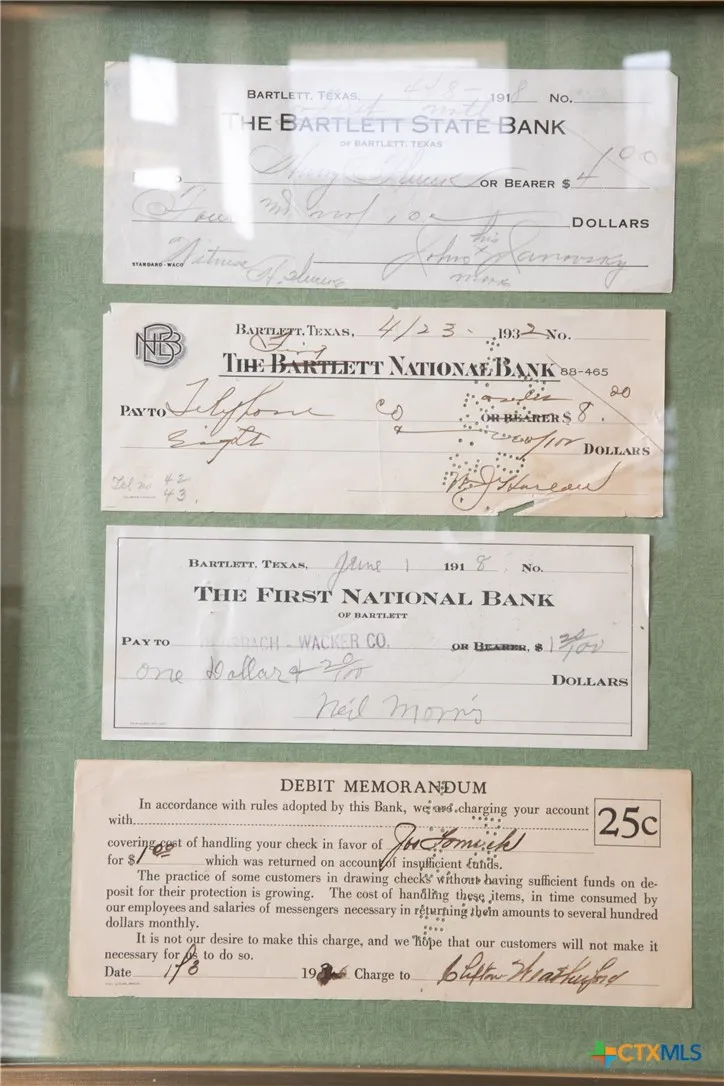 BARTLETT, TEXAS, 4/8- 1918 No.
THE BARTLETT STATE BANK
OF BARTLETT, TEXAS
OR BEARER $ 4.00
Four and no/100 DOLLARS
Witness his
STANDARD-WACO John Janovsky
mark
BARTLETT, TEXAS, 4/23- 1932 No.
NBB First
THE BARTLETT NATIONAL BANK 88-465
PAY TO Telephone Co OR BEARER $ 8.20
Eight & DOLLARS
Tel no 42
43.
BARTLETT, TEXAS, June 1 1918 No.
THE FIRST NATIONAL BANK
OF BARTLETT
PAY TO WACKER CO. OR BEARER, $ 1 20/100
One Dollar & 20/100 DOLLARS
Neil Morris
DEBIT MEMORANDUM
In accordance with rules adopted by this Bank, we are charging your account
with 25c
covering cost of handling your check in favor of Joe
for $1.00 which was returned on account of insufficient funds.
The practice of some customers in drawing checks without having sufficient funds on de-
posit for their protection is growing. The cost of handling these items, in time consumed by
our employees and salaries of messengers necessary in returning them amounts to several hundred
dollars monthly.
It is not our desire to make this charge, and we hope that our customers will not make it
necessary for us to do so.
Date 1/8 19 Charge to Clifton Weatherford
CTXMLS